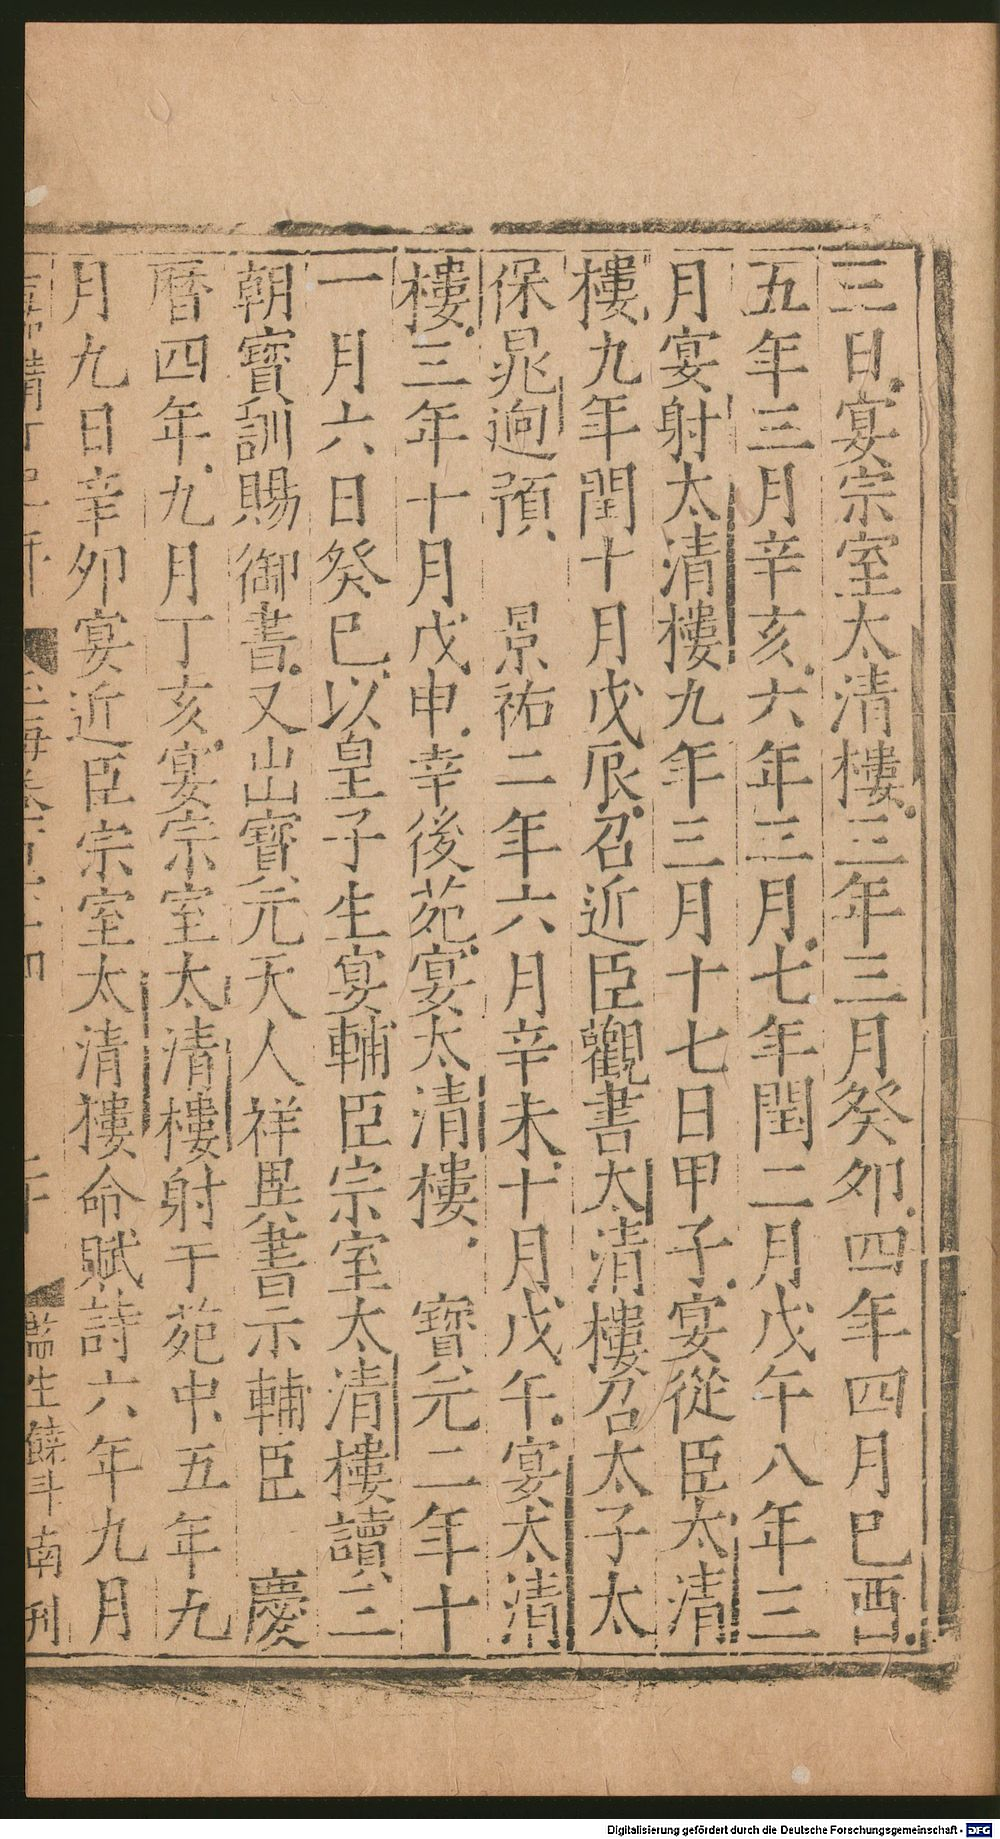 三日宴宗室太清樓三年三月癸卯四年四月巳酉
五年三月辛亥六年三月七年閏二月戊午八年三
月宴射太清樓九年三月十七日甲子宴從臣太清
樓九年閏十月戊辰召近臣觀書太清樓召太子太
保晁迥預 景祐二年六月辛未十月戊午宴太清
樓三年十月戊申幸後苑宴太清樓 寶元二年十
一月六日癸巳以皇子生宴輔臣宗室太清樓讀三
朝寶訓賜御書又出寶元天人祥異書示輔臣 慶
曆四年九月丁亥宴宗室太清樓射于苑中五年九
月九日辛卯宴近臣宗室太清樓命賦詩六年九月
監生饒斗南刊
Digitalisierung gefördert durch die Deutsche Forschungsgemeinschaft - DFG